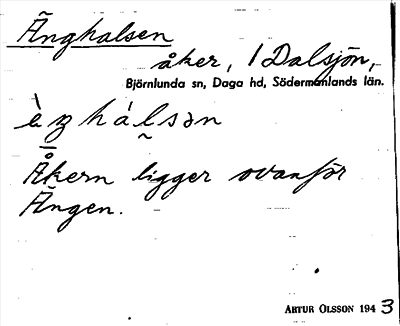 Änghalsen
åker, 1 Dalsjön,
Björnlunda sn, Daga hd, Södermanlands län.
Åkern ligger ovanför
Ängen.
ARTUR OLSSON 1943